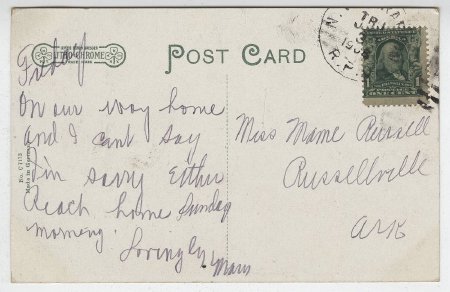 LITHO-CHROME
POST CARD
Friday
On our way home
and I cant say
I'm sorry Esther
Reach home Sunday
morning.
Lovingly
Mam
Miss Mame Russell
Russellville
Ark
N.
TR
R.P.
ONE CENT
Made in Germany